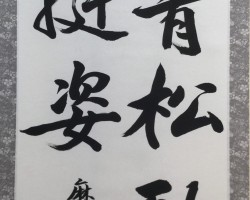 青松
挺姿